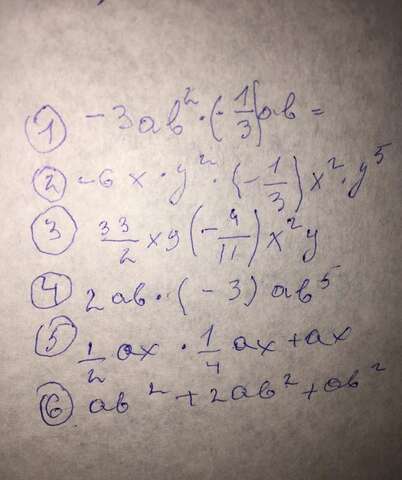 ① -3ab² · (-1/3)ab =
② -6x · y² · (-1/3)x² · y⁵
③ 33/2 xy(-4/11)x²y
④ 2ab · (-3)ab⁵
⑤ 1/2 ax · 1/4 ax + ax
⑥ ab² + 2ab² + ab²